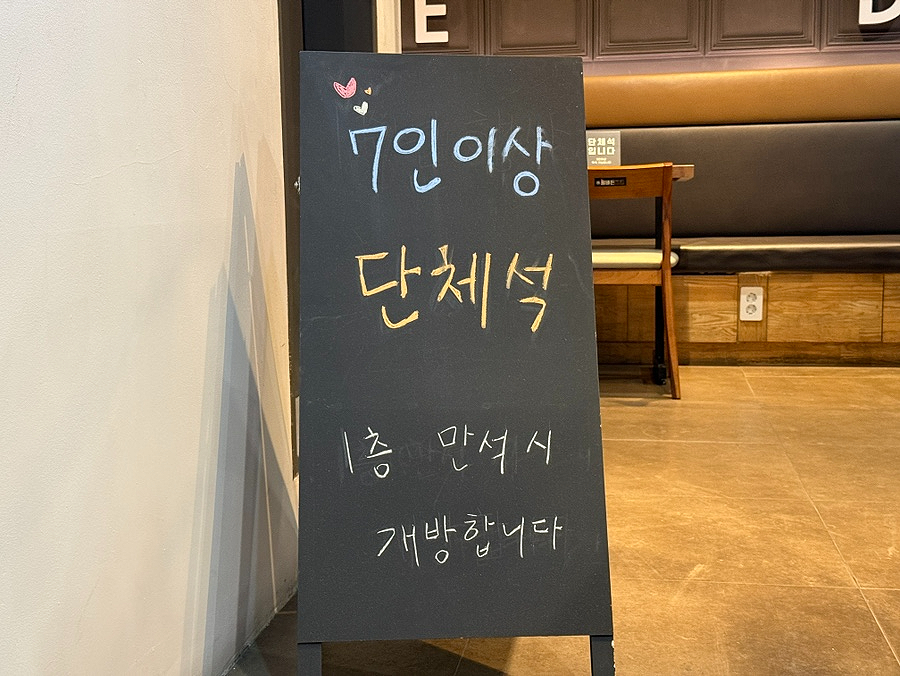 E
D
7인이상
단체석
1층 만석시
개방합니다
단체석
입니다